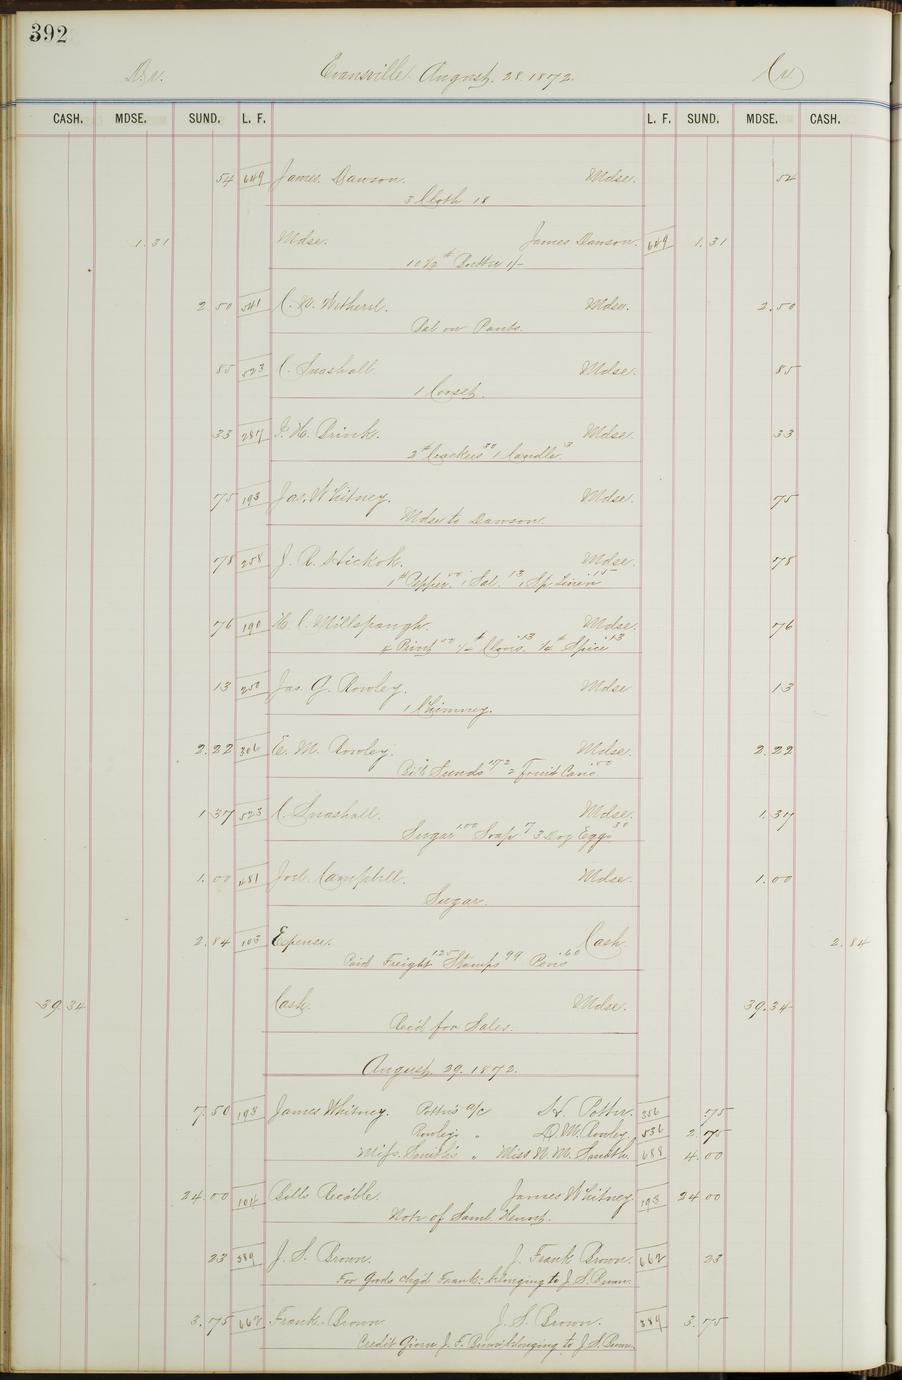 392
Dr. Evansville August. 28. 1872. Cr
CASH. MDSE. SUND. L. F. L. F. SUND. MDSE. CASH.
54 649 James. Dawson. Mdse. 54
3 Cloth 18
1.31 Mdse. James Dawson. 649 1.31
10 1/2 # Butter 1/-
2.50 541 Mdse. 2.50
Bal on Pants.
85 523 C. Snashall. Mdse. 85
1 Corset.
33 287 Mdse. 33
2 # Crackers 30 1 Candle 3
75 193 Jas. Whitney. Mdse. 75
Mdse to Dawson.
78 258 J. R. Hickok. Mdse. 78
1 # Pepper. 50 1 Sal. 13 1 Sp. Linen 15
76 190 H. C. Millspaugh. Mdse. 76
4 Print 50 1/4 # Cloves. 13 1/4 # Spice 13
13 250 Jas. G. Rowley. Mdse 13
1 Chimney.
2.22 306 E. M. Rowley. Mdse. 2.22
Bill Sunds 1.72 2 Fruit Cans. 50
1 37 523 C. Snashall. Mdse. 1.37
Sugar 1.00 Soap 7 3 Doz Eggs 30
1.00 481 Joel Campbell. Mdse. 1.00
Sugar.
2.84 103 Expense. Cash 2.84
Paid Freight 1.25 Stamps 99 Pens .60
39.34 Cash. Mdse. 39.34
Rec'd for Sales.
August. 29. 1872.
7.50 193 James Whitney. Potter's a/c H. Potter. 356 75
Rowley " D. M. Rowley. 536 2.75
Miss. Smith's " Miss N. M. Smith. 688 4.00
24 00 104 Bills Rec'able. James Whitney. 193 24 00
Note of Saml. Hunt.
23 389 J. S. Brown. J. Frank Brown. 662 23
For Goods chg'd Frank: belonging to J. S. Brown.
3.75 662 Frank. Brown J. S. Brown. 389 3.75
Credit Given J. F. Brown belonging to J. S. Brown.